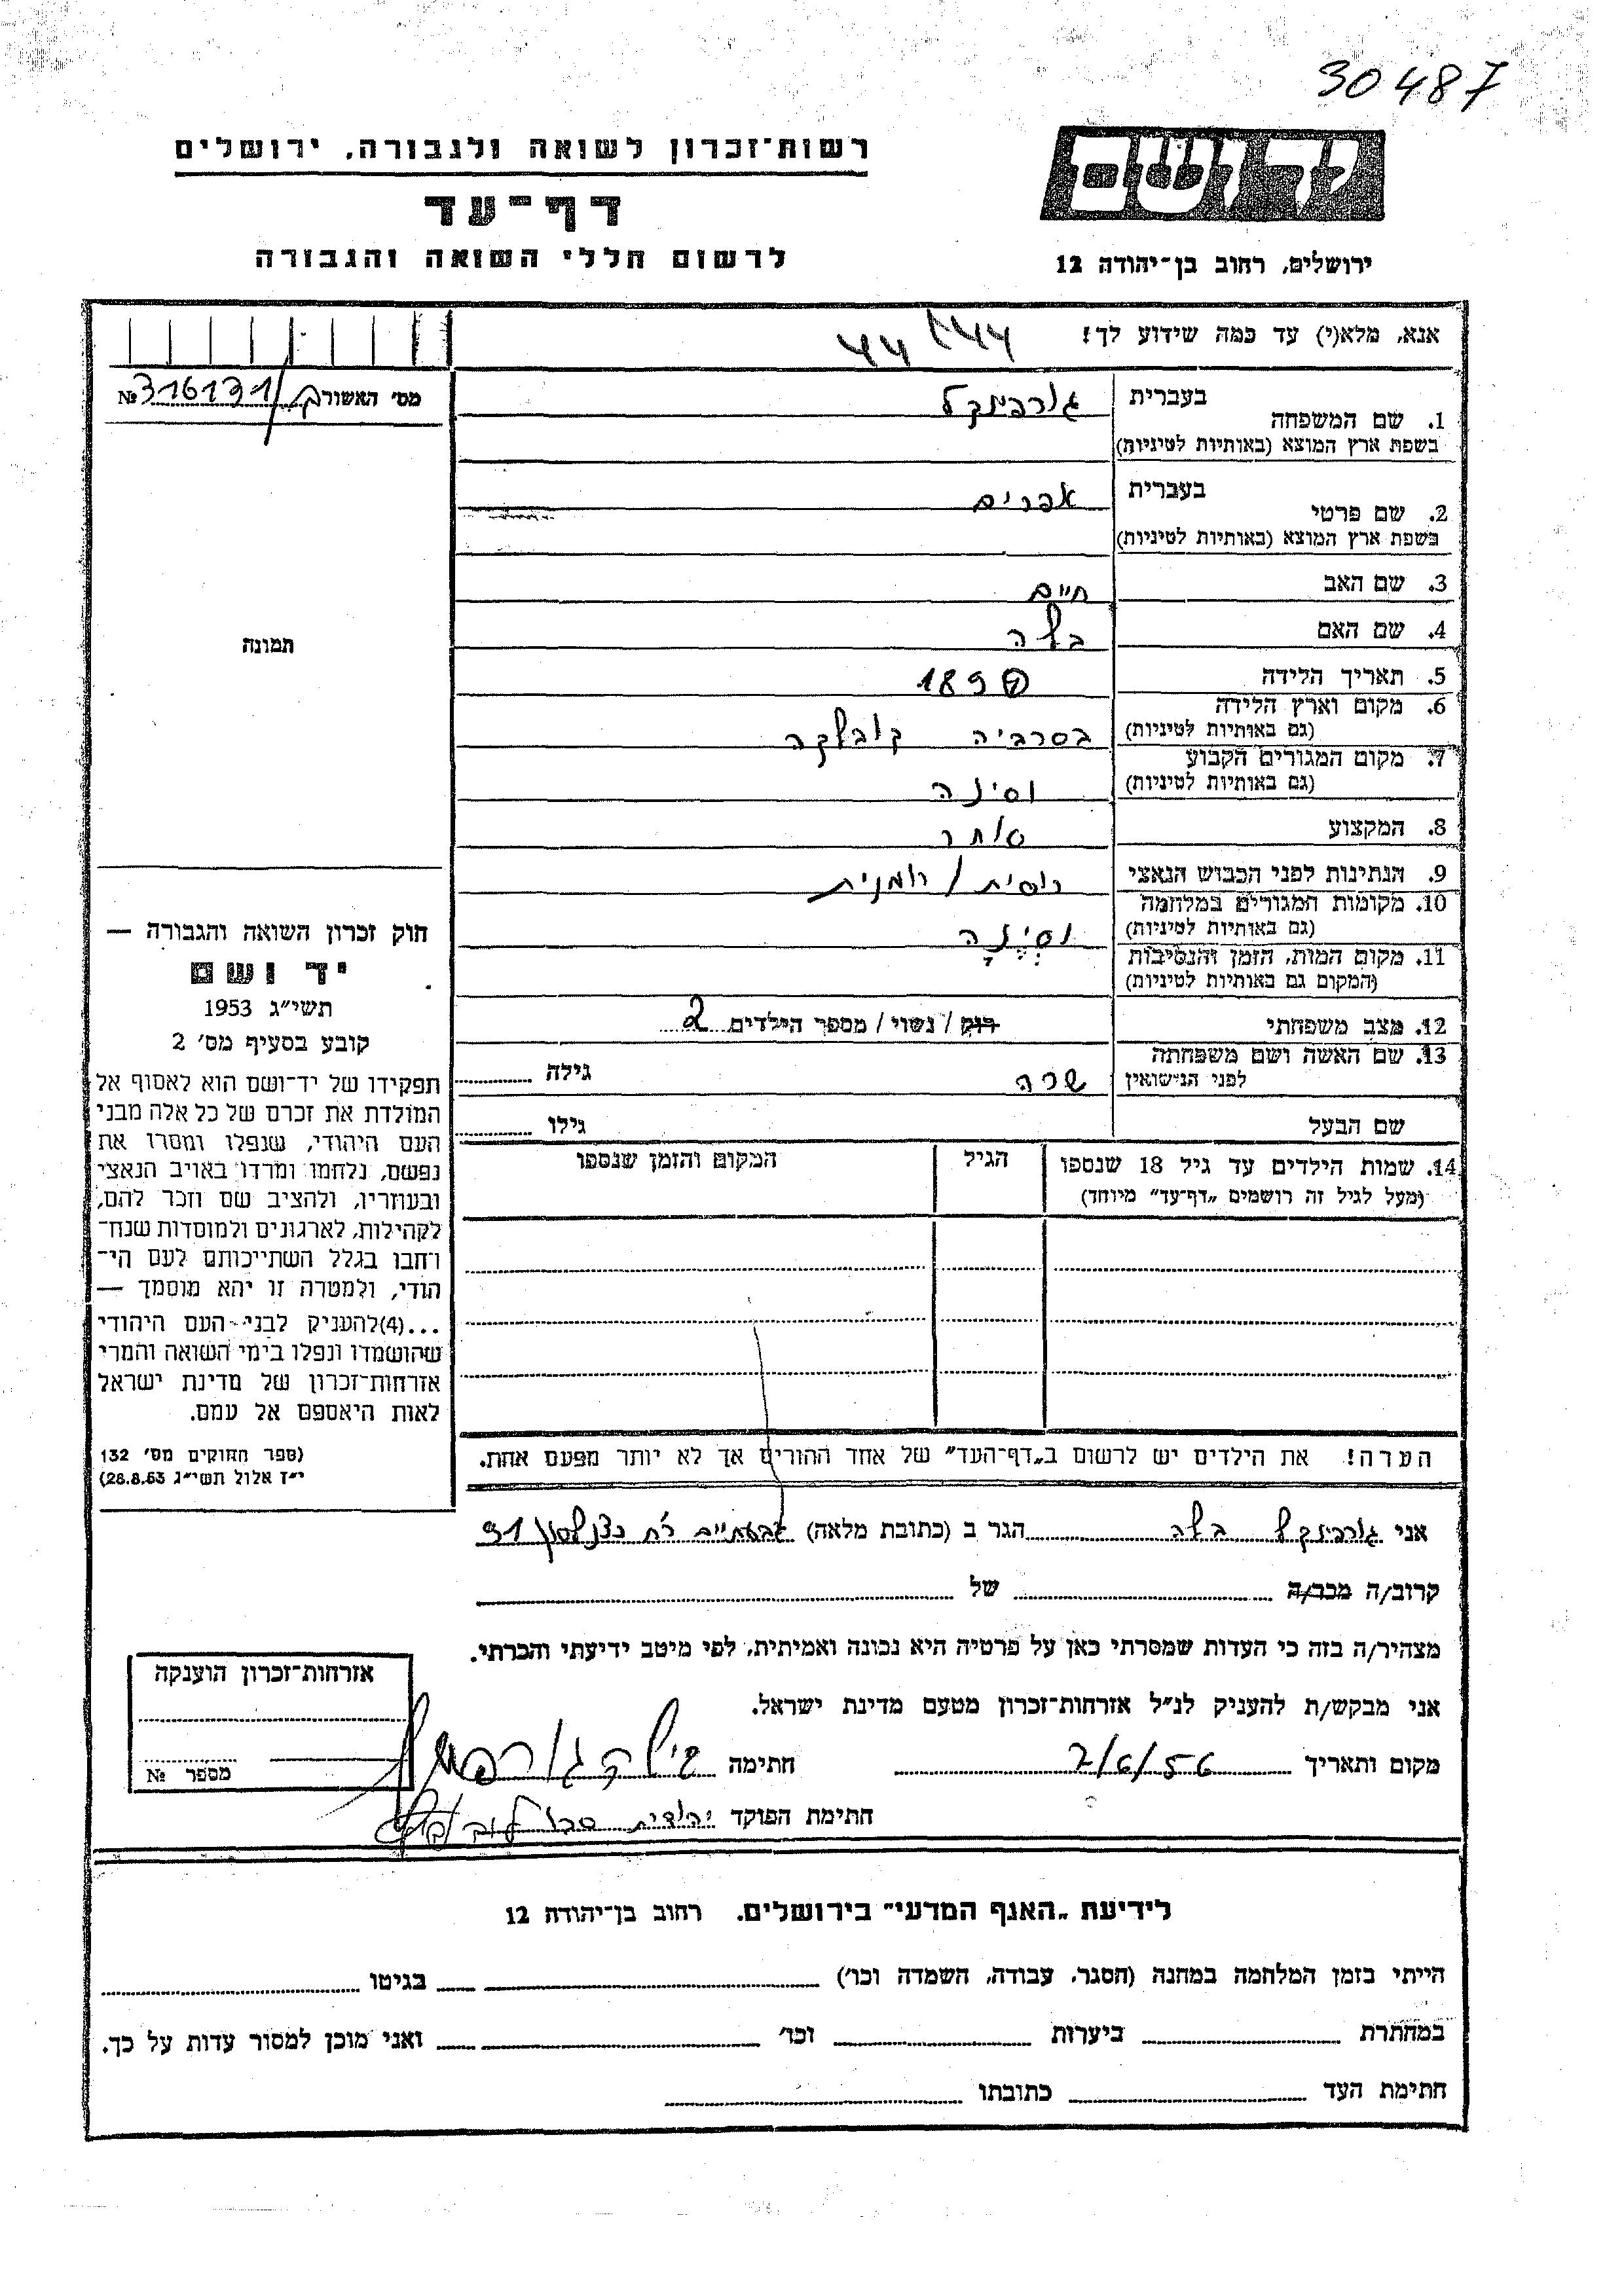 30487
יד ושם
רשות־זכרון לשואה ולגבורה, ירושלים
דף־עד
לרשום חללי השואה והגבורה
ירושלים, רחוב בן־יהודה 12
אנא, מלא(י) עד כמה שידוע לך!
מס׳ האשור № 316131
1. שם המשפחה בעברית גורפינקל
בשפת ארץ המוצא (באותיות לטיניות)
2. שם פרטי בעברית אפרים
בשפת ארץ המוצא (באותיות לטיניות)
3. שם האב חיים
4. שם האם בילה
5. תאריך הלידה 1890
6. מקום וארץ הלידה בסרביה
(גם באותיות לטיניות)
7. מקום המגורים הקבוע וסינה
(גם באותיות לטיניות)
8. המקצוע סוחר
9. הנתינות לפני הכבוש הנאצי רוסית / רומנית
10. מקומות המגורים במלחמה וסינה
(גם באותיות לטיניות)
11. מקום המות, הזמן והנסיבות
(המקום גם באותיות לטיניות)
12. מצב משפחתי רוק / נשוי / מספר הילדים 2
13. שם האשה ושם משפחתה שרה גילה
לפני הנישואין
שם הבעל גילו
14. שמות הילדים עד גיל 18 שנספו הגיל המקום והזמן שנספו
(מעל לגיל זה רושמים „דף־עד״ מיוחד)
הערה! את הילדים יש לרשום ב„דף־העד״ של אחד ההורים אך לא יותר מפעם אחת.
תמונה
חוק זכרון השואה והגבורה —
יד ושם
תשי״ג 1953
קובע בסעיף מס׳ 2
תפקידו של יד־ושם הוא לאסוף אל
המולדת את זכרם של כל אלה מבני
העם היהודי, שנפלו ומסרו את
נפשם, נלחמו ומרדו באויב הנאצי
ובעוזריו, ולהציב שם וזכר להם,
לקהילות, לארגונים ולמוסדות שנח־
רחבו בגלל השתייכותם לעם הי־
הודי, ולמטרה זו יהא מוסמך —
...(4)להעניק לבני־העם היהודי
שהושמדו ונפלו בימי השואה והמרי
אזרחות־זכרון של מדינת ישראל
לאות היאספם אל עמם.
(ספר החוקים מס׳ 132
י״ז אלול תשי״ג 28.8.53)
אני גורפינקל בילה הגר ב (כתובת מלאה) גבעתיים רח׳ כצנלסון 91
קרוב/ה מכר/ה של
מצהיר/ה בזה כי העדות שמסרתי כאן על פרטיה היא נכונה ואמיתית, לפי מיטב ידיעתי והכרתי.
אני מבקש/ת להעניק לנ״ל אזרחות־זכרון מטעם מדינת ישראל.
מקום ותאריך 7/6/56 חתימה
חתימת הפוקד יהודית
אזרחות־זכרון הוענקה
מספר №
לידיעת „האגף המדעי״ בירושלים, רחוב בן־יהודה 12
הייתי בזמן המלחמה במחנה (הסגר, עבודה, השמדה וכו׳) בגיטו
במחתרת ביערות וכו׳ ואני מוכן למסור עדות על כך.
חתימת העד כתובתו